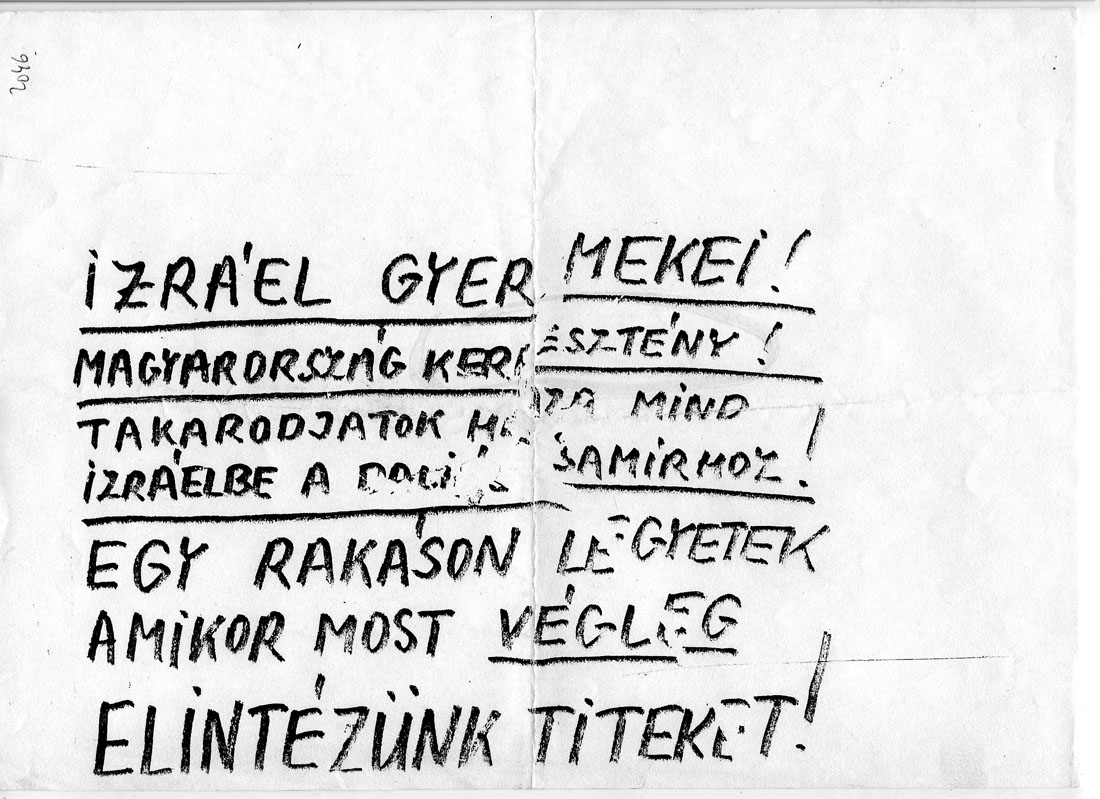 2046.
IZRÁEL GYERMEKEI!
MAGYARORSZÁG KERESZTÉNY!
TAKARODJATOK HAZA MIND
IZRÁELBE A SAMIRHOZ!
EGY RAKÁSON LEGYETEK
AMIKOR MOST VÉGLEG
ELINTÉZÜNK TITEKET!